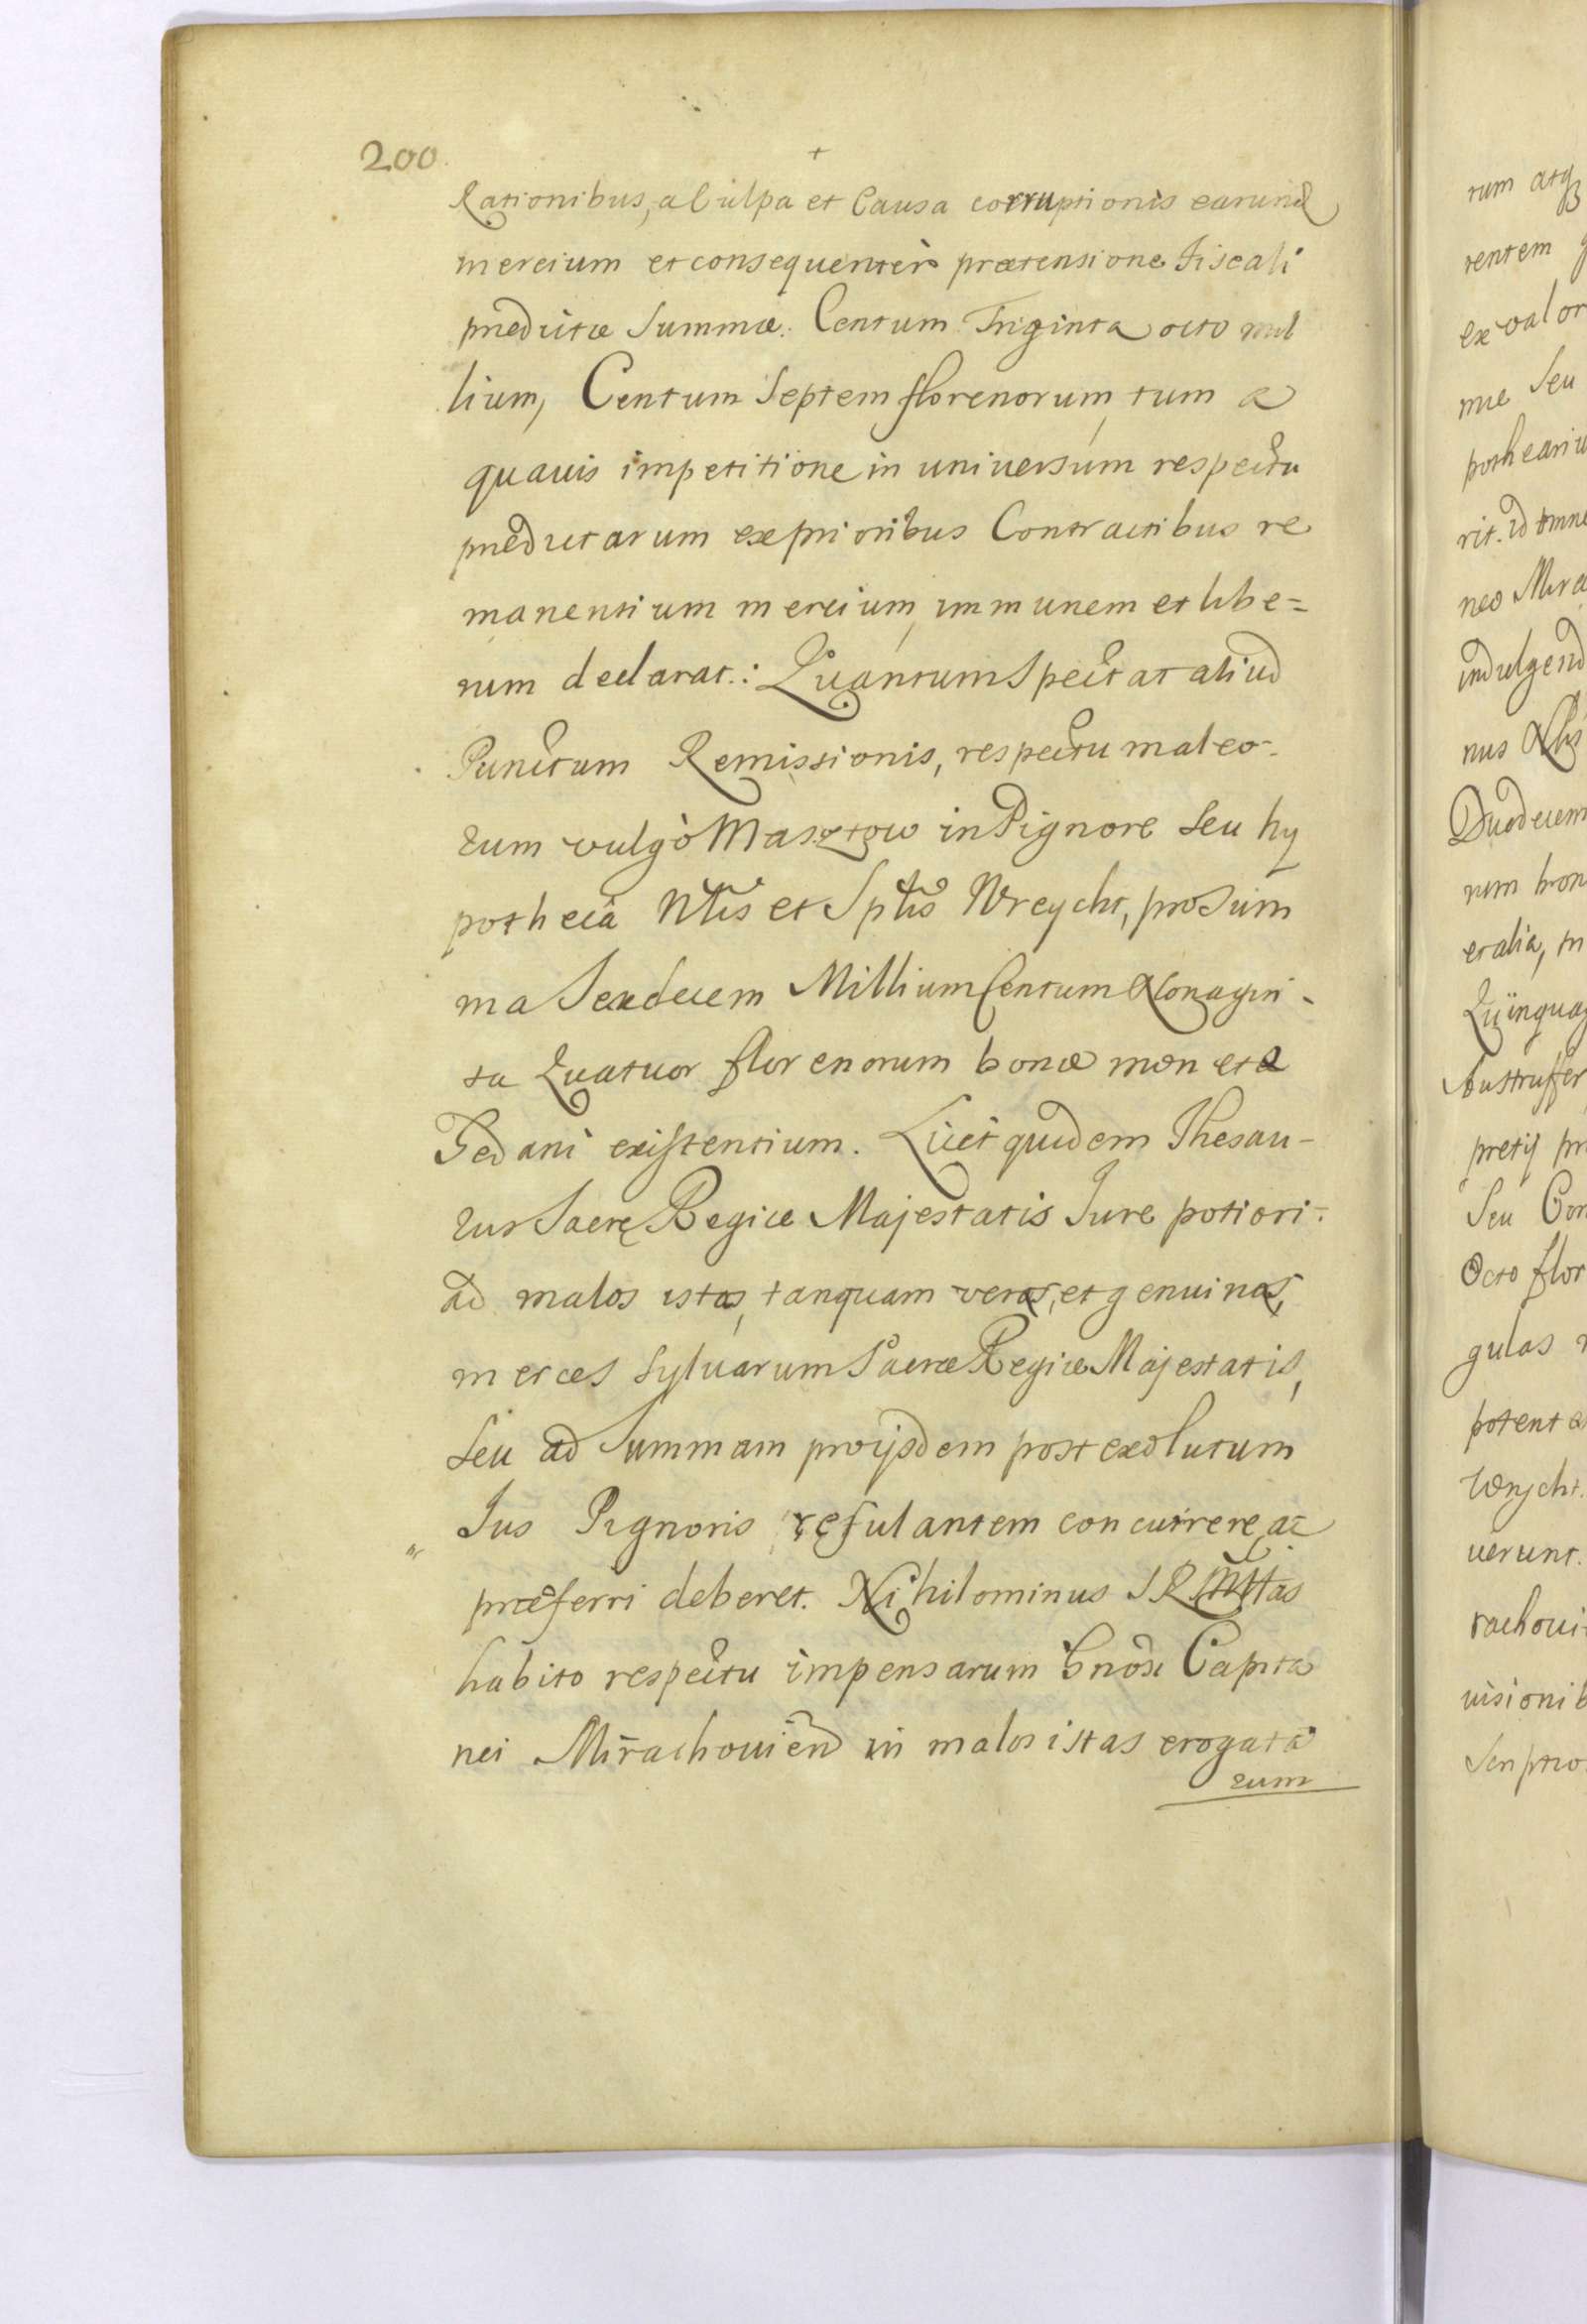 200
Rationibus, a Culpa et Causa corruptionis earund
mercium et consequenter prætensione Fiscali
prædictæ Summæ. Centum Triginta octo mil
lium, Centum Septem florenorum, tum a
quauis impetitione in universum respectu
prædictarum ex prioribus Contractibus re
manentium mercium, immunem et libe=
rum declarat.: Quantum Spectat aliud
Punctum Remissionis, respectu maleo-
rum vulgò Masztow in Pignore seu hy
pothecâ Nlis et Sptlis Wreycht, pro Sum
ma Sexdecem Millium Centum Nonagin-
ta Quatuor florenorum bonæ monetæ
Gedani existentium. Licet quidem Thesau-
rus Sacrę Regiæ Majestatis Jure potiori
ad malos istas, tanquam veras, et genuinas,
merces Syluarum Sacræ Regiæ Majestatis,
seu ad Summam pro ijsdem post exolutum
Jus Pignoris resultantem concurrere, ac
præferri deberet. Nihilominus S R Mttas
habito respectu impensarum Gnosi Capita
nei Mirachouien in malos istas erogata
rum
rum atq3
rentem
ex valor
mæ Seu
pothecariu
rit. Id omne
neo Mira
indulgend
nus Nlis
Duodecem
rum bon
et alia, in
Quinquag
Austruffer
pretij pr
Seu Con
Octo flor
gulas
potenta
Wrycht.
uerunt.
rachoui
uisionib
Scriptio